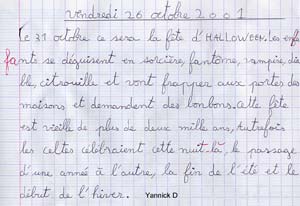 vendredi 26 octobre 2001
Le 31 octobre ce sera la fête d'HALLOWEEN. Les enf
fants se déguisent en sorcière, fantôme, vampire, dia
ble, citrouille et vont frapper aux portes des
maisons et demandent des bonbons. Cette fête
est vieille de plus de deux mille ans, Autrefois
les celtes célébraient cette nuit-là, le passage
d'une année à l'autre, la fin de l'été et le
début de l'hiver.
Yannick D